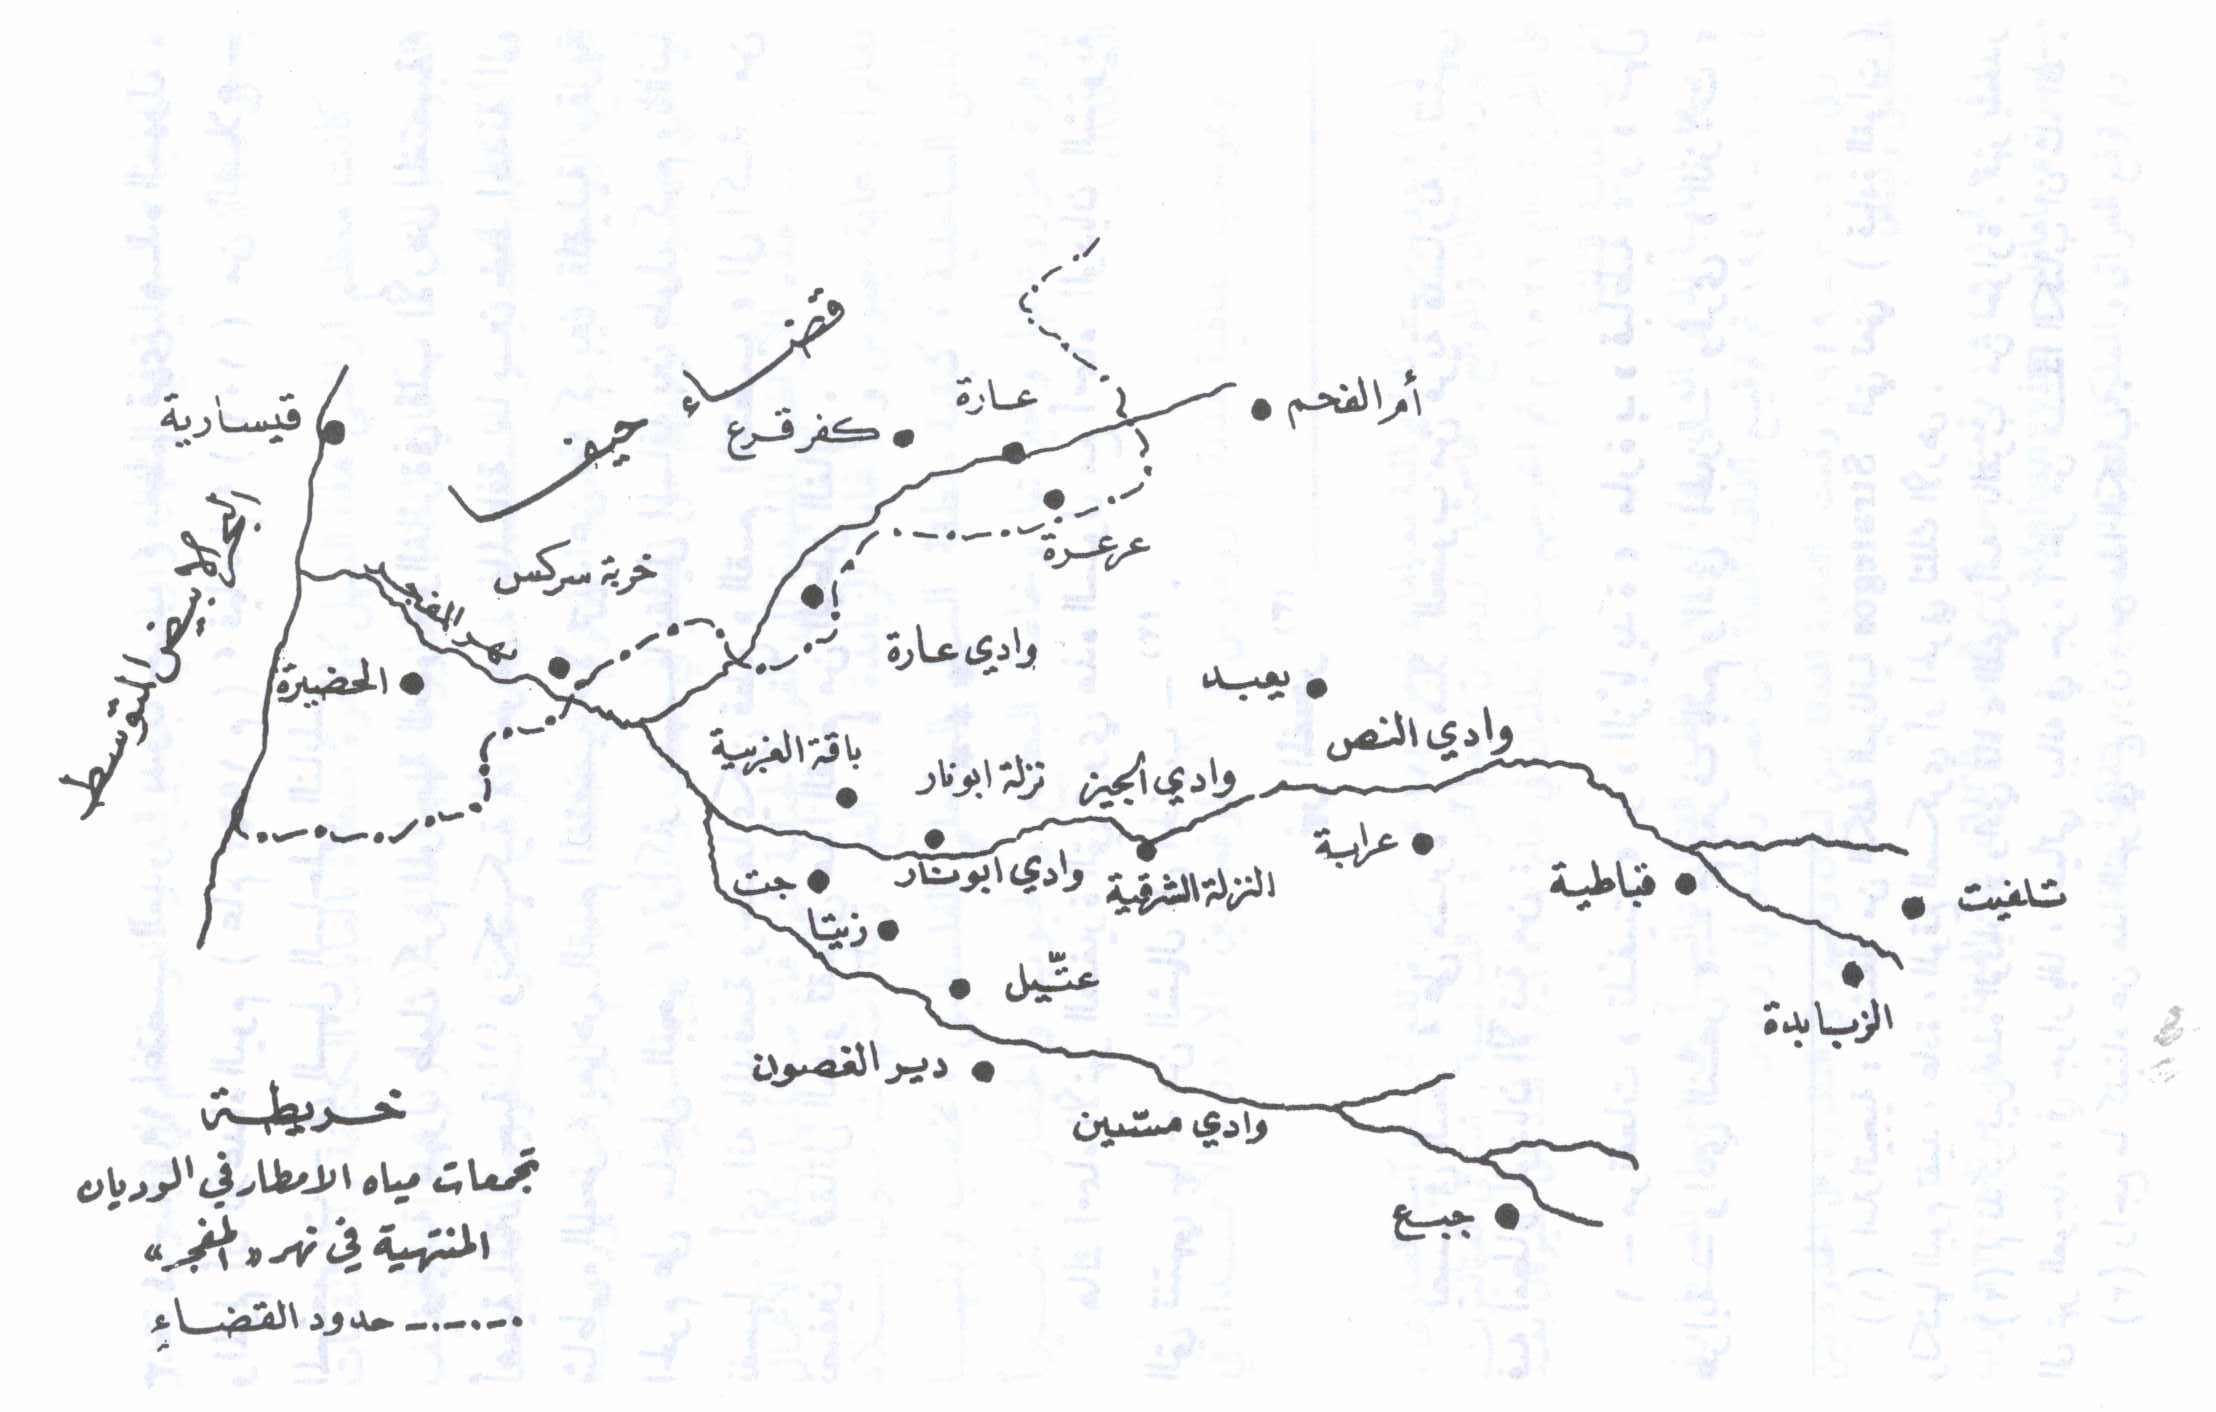 قضاء
حيفا
أم الفحم
عارة
كفر قرع
قيسارية
البحر الابيض المتوسط
عرعرة
خربة سركس
نهر المفجر
وادي عارة
الحضيرة
يعبد
وادي النص
باقة الغربية
نزلة ابو نار
وادي الجيز
عرابة
وادي ابو نار
النزلة الشرقية
جت
قباطية
تلفيت
زيتا
عتّيل
الزبابدة
دير الغصون
وادي مسّين
جبع
خريطة
تجمعات مياه الامطار في الوديان
المنتهية في نهر «المفجر»
حدود القضاء